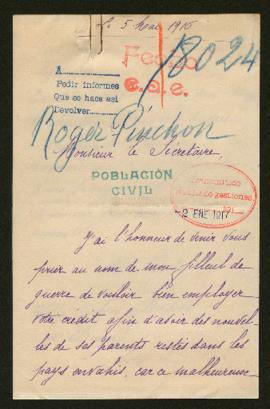 Le 5 1916
Fecho
18024
e.a.e.
A
Pedir informes
Que se hace asi
Devolver
Roger Pinchon
Monsieur le Secrétaire,
POBLACIÓN
CIVIL
2 ENE 1917
J'ai l'honneur de venir vous
prier au nom de mon filleul de
guerre de vouloir bien employer
votre crédit afin d'avoir des nouvel-
les de ses parents restés dans les
pays envahis, car ce malheureux